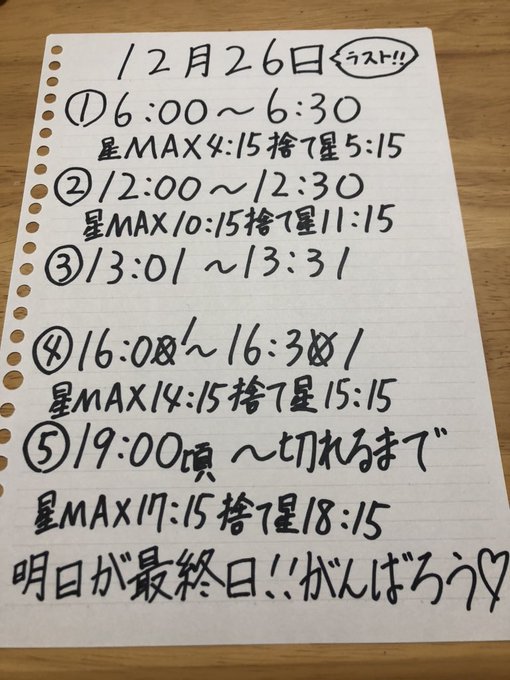 12月26日 ラスト!!
①6:00〜6:30
星MAX4:15捨て星5:15
②12:00〜12:30
星MAX10:15捨て星11:15
③13:01〜13:31
④16:01〜16:31
星MAX14:15捨て星15:15
⑤19:00頃〜切れるまで
星MAX17:15捨て星18:15
明日が最終日!!がんばろう♡